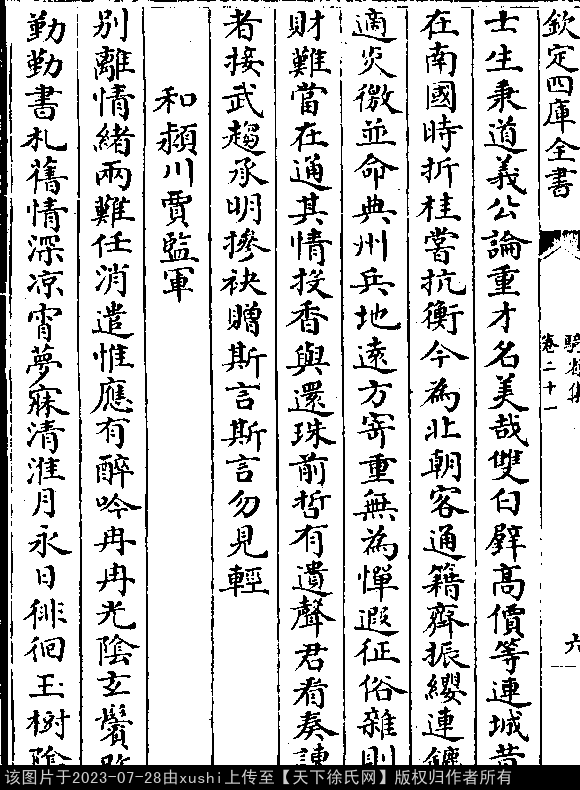 欽定四庫全書
騎省集
卷二十一
六
士生秉道義公論重才名美哉雙白璧高價等連城昔
在南國時折桂嘗抗衡今為北朝客通籍齊振纓連鑣
適炎徼並命典州兵地遠方寄重無為憚遐征俗雜則
財難當在通其情投香與還珠前哲有遺聲君看奏課
者接武趨承明摻袂贈斯言斯言勿見輕
和潁川賈監軍
別離情緒兩難任消遣惟應有醉吟冉冉光陰玄鬢
勤勤書札舊情深凉宵夢寐清淮月永日徘徊玉樹陰
该图片于2023-07-28由xushi上传至【天下徐氏网】版权归作者所有